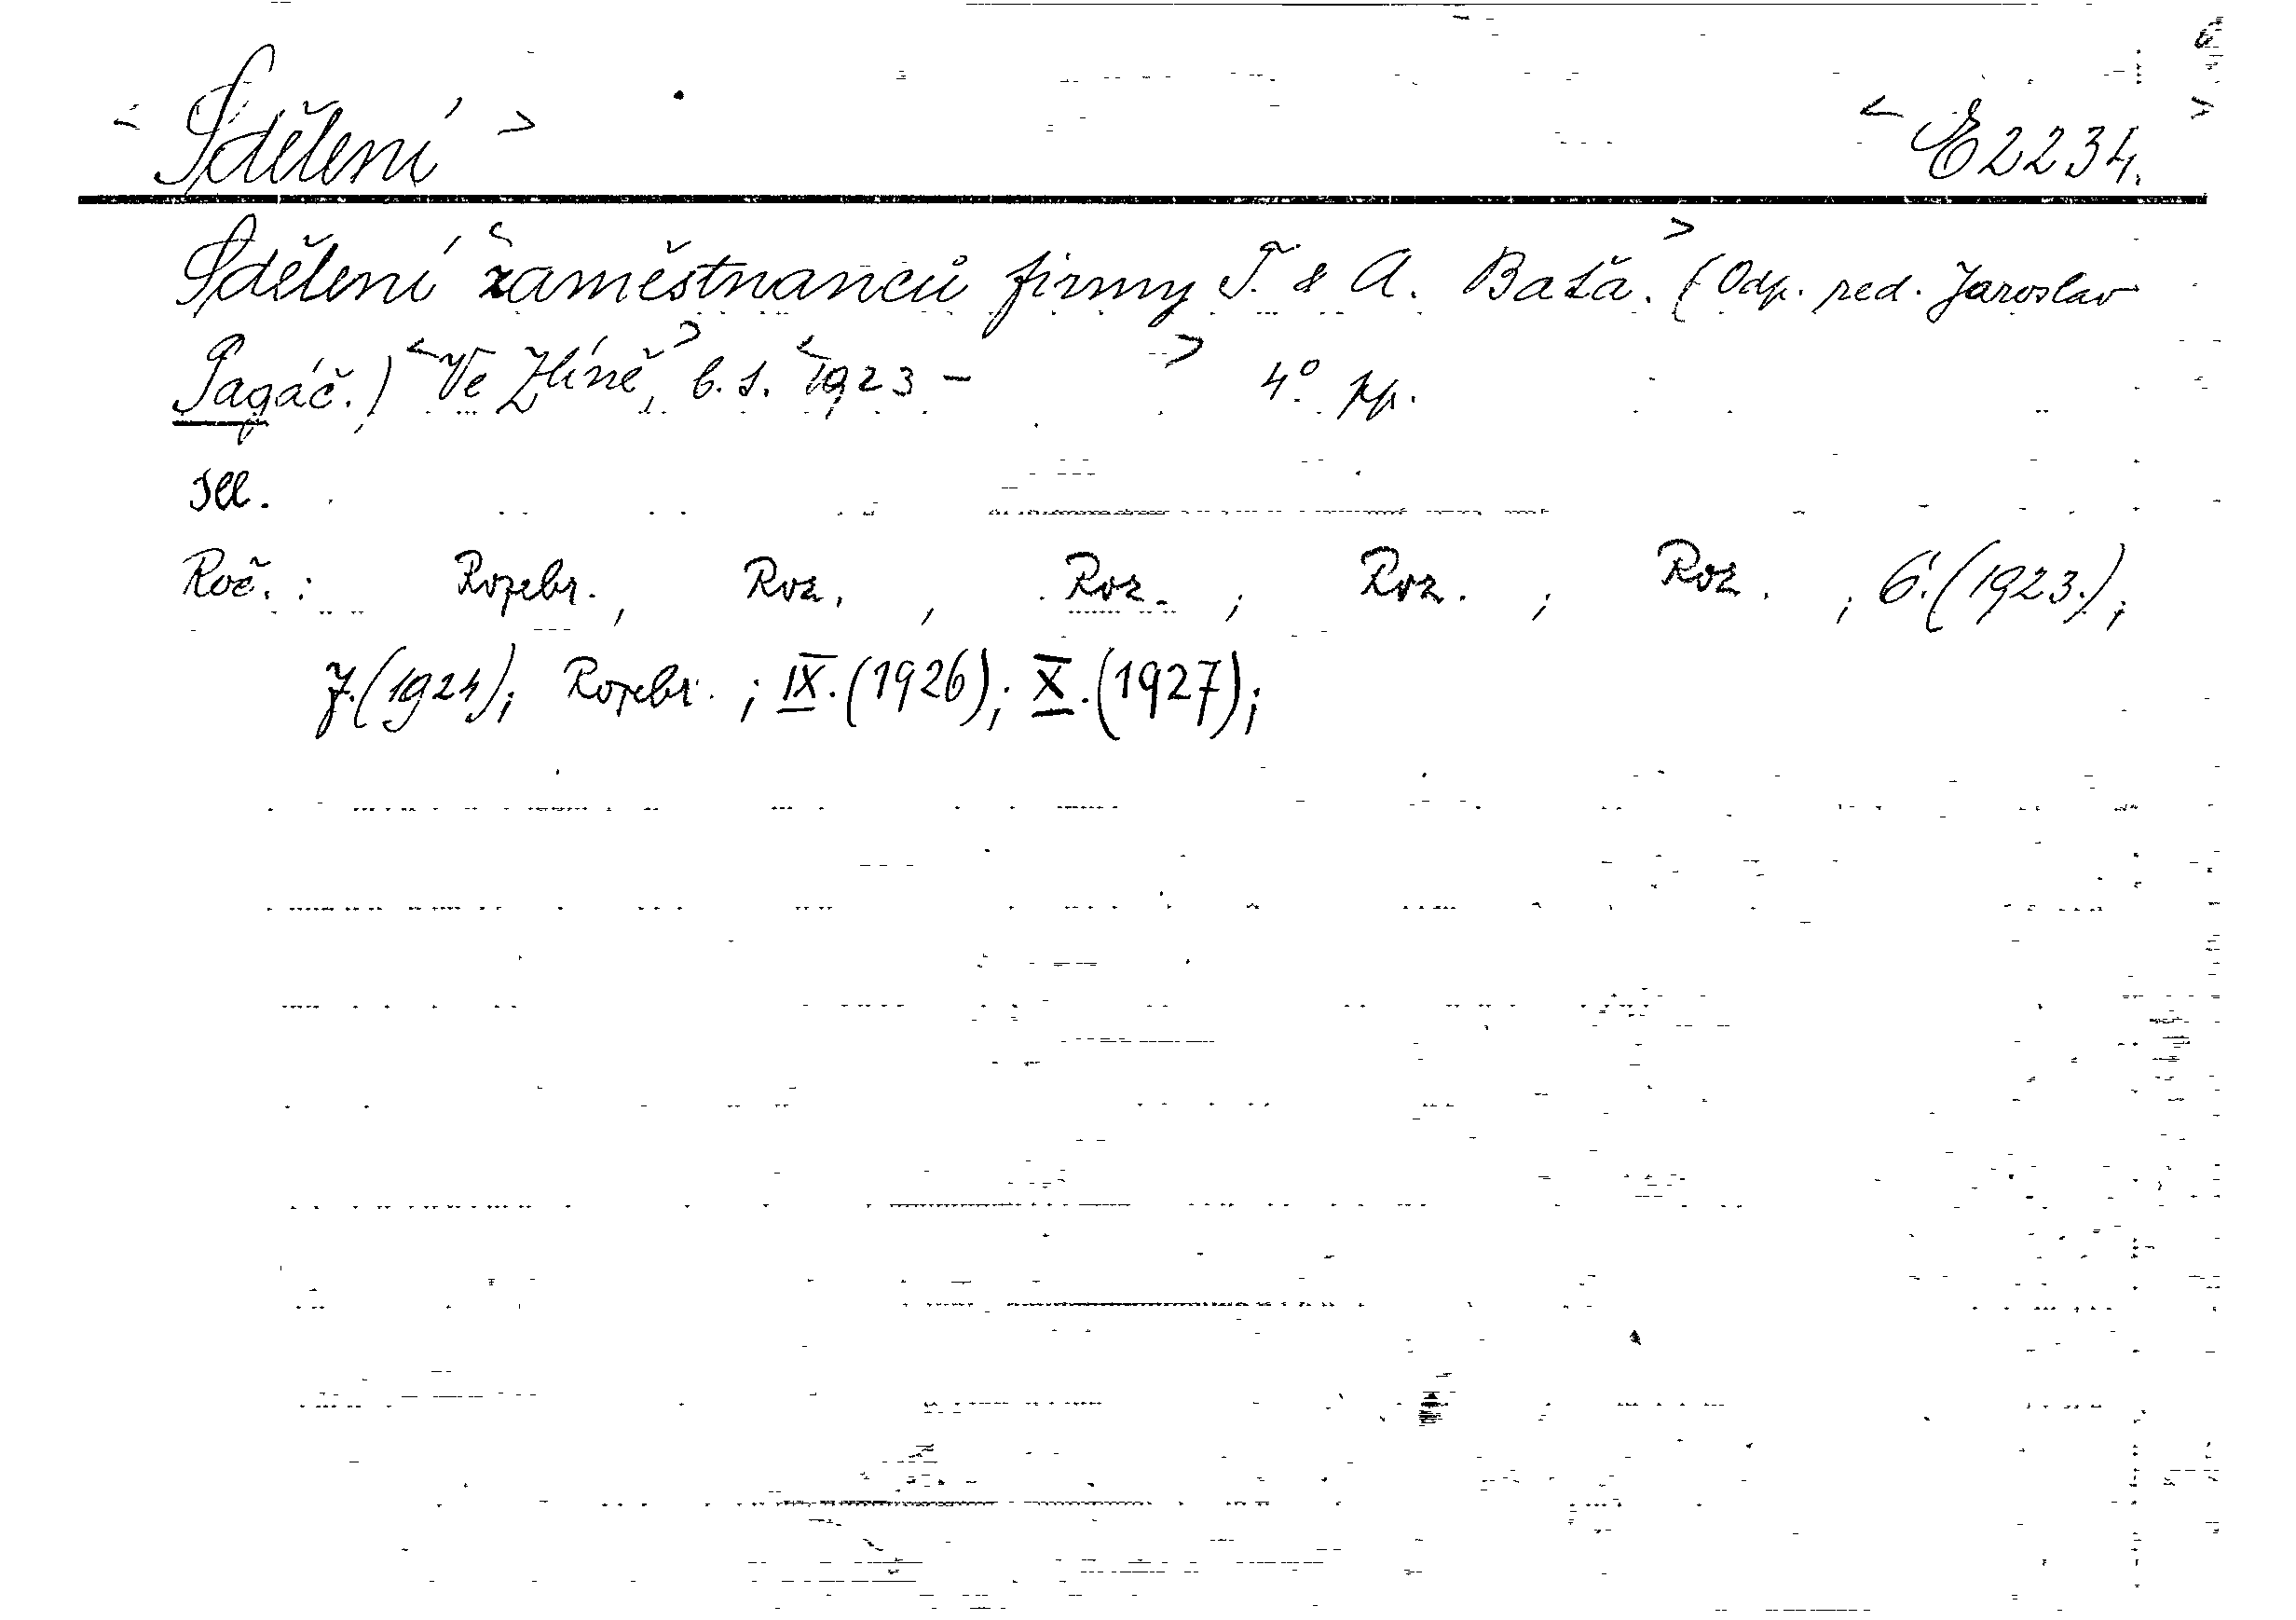 < Sdělení > < E 2234. >
Sdělení < zaměstnanců firmy T. & A. Baťa. > (Odp. red. Jaroslav
Pagáč.) < Ve Zlíně, > b. s. < 1923 - > 4° pp.
Roč. : Rozebr. , Roz. , Roz. ; Roz. ; Roz. ; 6. (1923.);
7. (1924); Rozebr. ; IX. (1926); X. (1927);